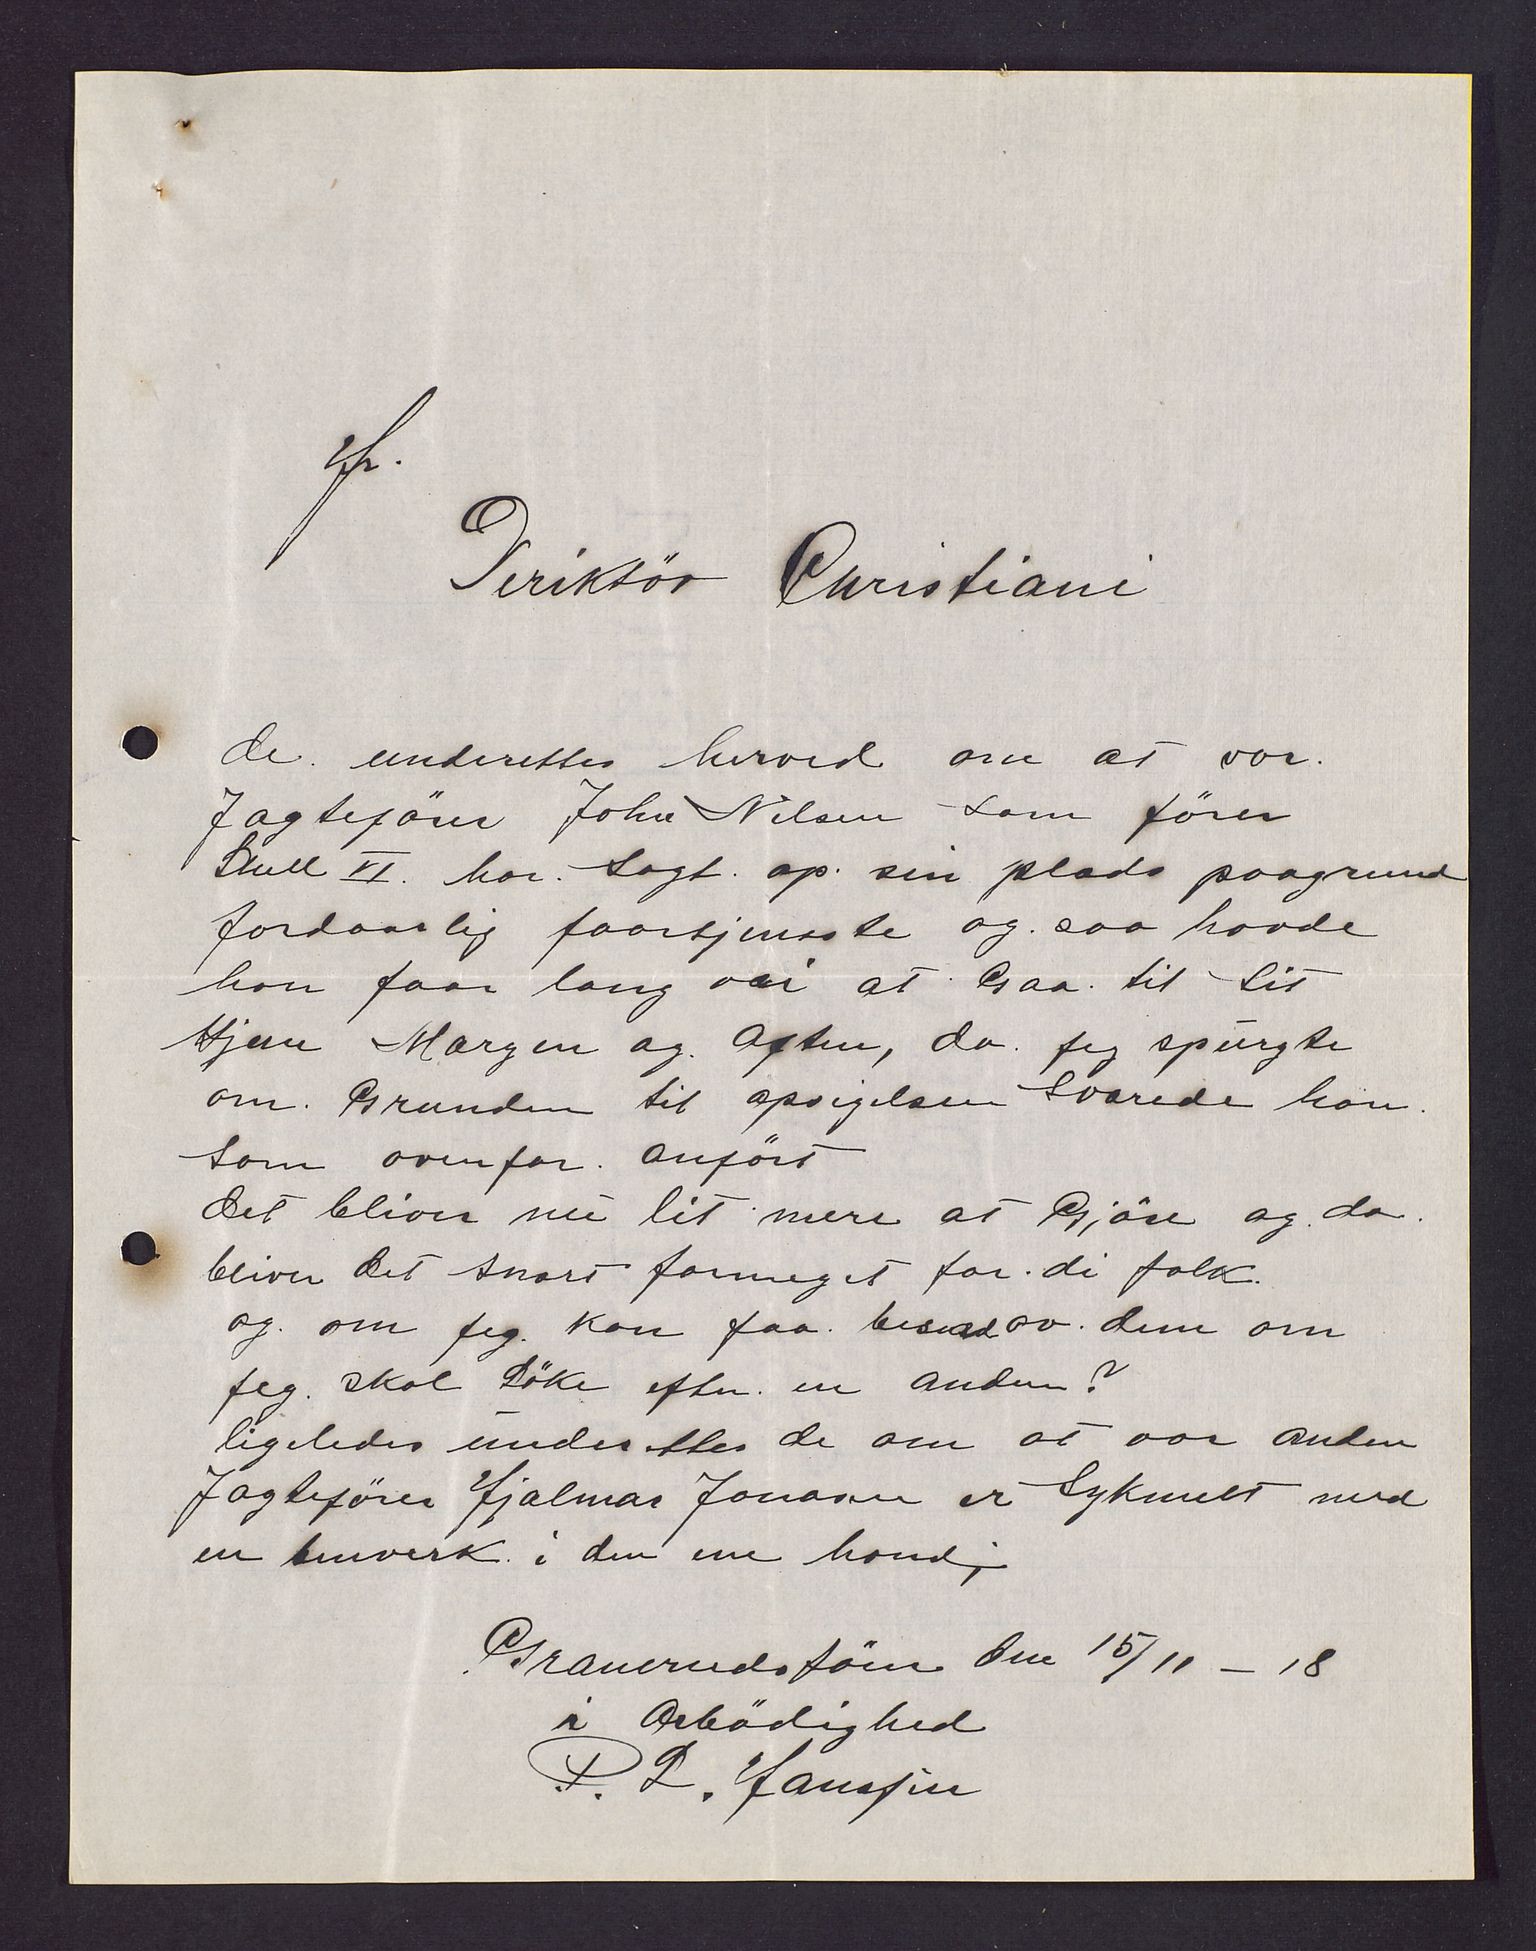 Hr.
Deriktör Christiani
de. underettes herved om at vor.
Jagteförer John Nilsen som förer
Shell VI. har. sagt. op. sin plads paagrund
fordaarlig faartjenesste og. saa havde
han faar lang vei at Gaa. til sit
Hjem Morgen og. Aften, da. jeg spurgte
om. Grunden til opsigelsen Svarede han.
som ovenfor. anfört
det bliver nu lit mere at Gjöre og. da.
bliver det snart formeget for. di folk.
og. om jeg. kan faa. besked av. dem om
jeg. skal söke efter. en anden?
ligeledes underettes de om at vor anden
Jagteförer Hjalmar Jonasen er Sykmelt med
en benverk. i den ene hand,
Granerudstöen den 15/11 – 18
i Arbödighed
P. L. Hanssen